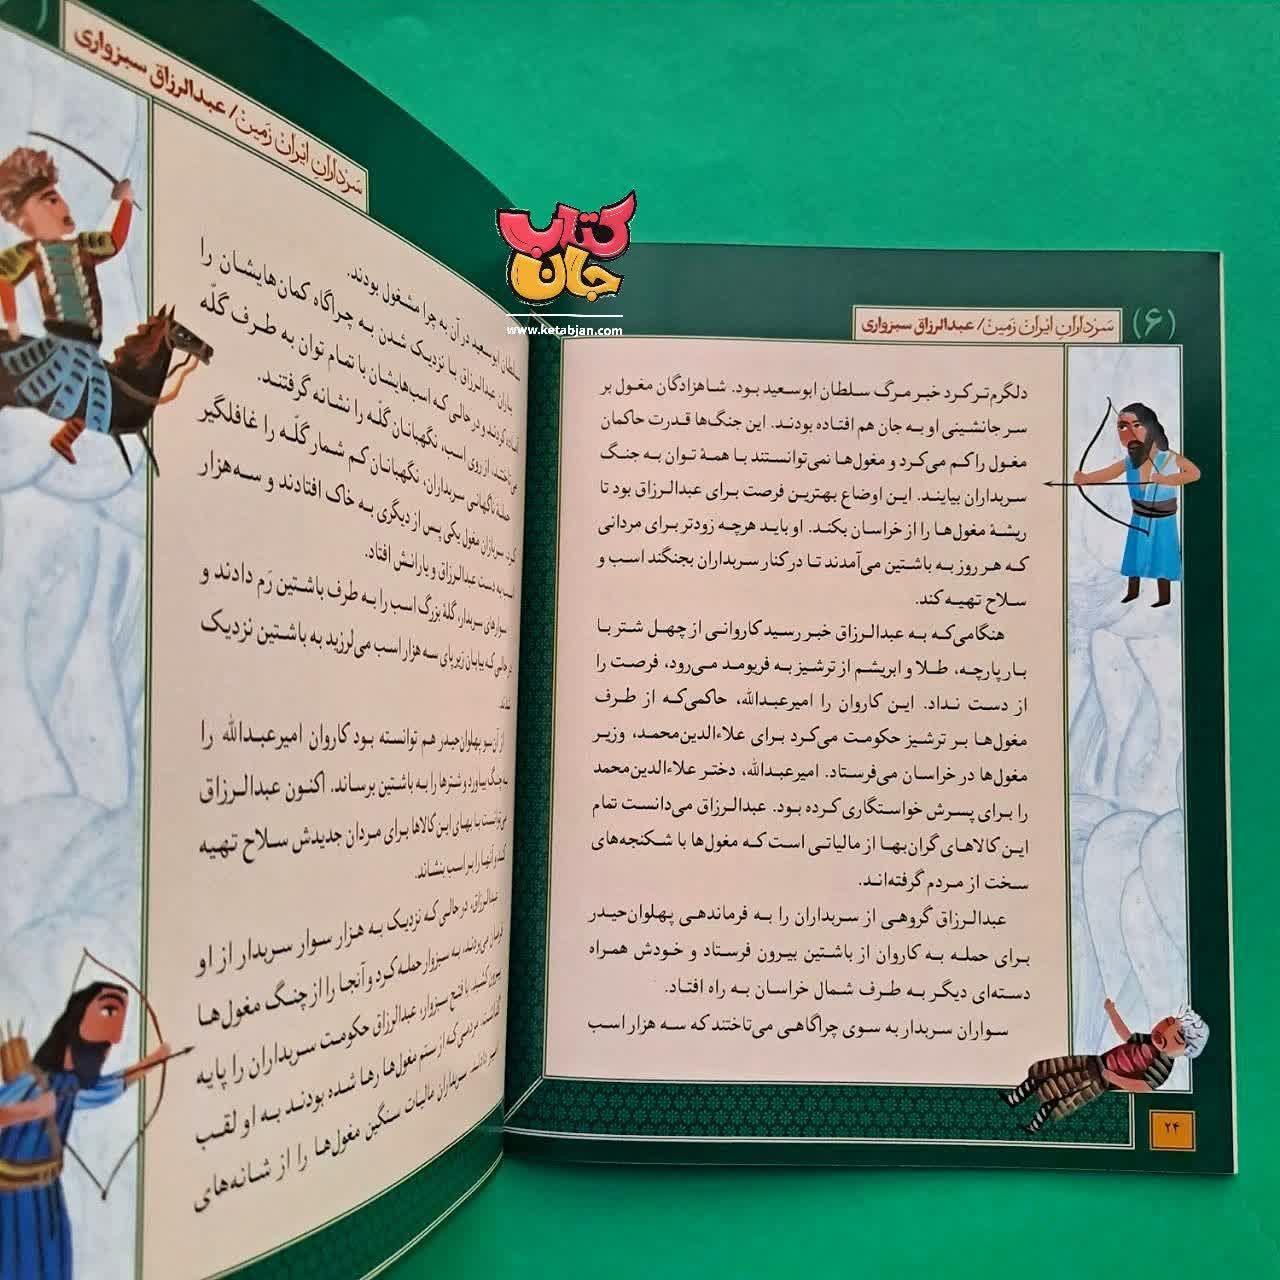 (۶)
سَرداران ایران زَمین/ عبدالرزاق سبزواری
دلگرم‌تر کرد خبر مرگ سلطان ابوسعید بود. شاهزادگان مغول بر
سر جانشینی او به جان هم افتاده بودند. این جنگ‌ها قدرت حاکمان
مغول را کم می‌کرد و مغول‌ها نمی‌توانستند با همهٔ توان به جنگ
سربداران بیایند. این اوضاع بهترین فرصت برای عبدالرزاق بود تا
ریشهٔ مغول‌ها را از خراسان بکند. او باید هرچه زودتر برای مردانی
که هر روز به باشتین می‌آمدند تا در کنار سربداران بجنگند اسب و
سلاح تهیه کند.
هنگامی‌که به عبدالرزاق خبر رسید کاروانی از چهل شتر با
بار پارچه، طلا و ابریشم از ترشیز به فریومد می‌رود، فرصت را
از دست نداد. این کاروان را امیرعبدالله، حاکمی‌که از طرف
مغول‌ها بر ترشیز حکومت می‌کرد برای علاءالدین‌محمد، وزیر
مغول‌ها در خراسان می‌فرستاد. امیرعبدالله، دختر علاءالدین‌محمد
را برای پسرش خواستگاری کرده بود. عبدالرزاق می‌دانست تمام
این کالاهای گران‌بها از مالیاتی است که مغول‌ها با شکنجه‌های
سخت از مردم گرفته‌اند.
عبدالرزاق گروهی از سربداران را به فرماندهی پهلوان‌حیدر
برای حمله به کاروان از باشتین بیرون فرستاد و خودش همراه
دسته‌ای دیگر به طرف شمال خراسان به راه افتاد.
سواران سربدار به سوی چراگاهی می‌تاختند که سه هزار اسب
۲۴
سَرداران ایران زَمین/ عبدالرزاق سبزواری
سلطان ابوسعید در آن به چرا مشغول بودند.
یاران عبدالرزاق با نزدیک شدن به چراگاه کمان‌هایشان را
آماده کردند و در حالی که اسب‌هایشان با تمام توان به طرف گلّه
می‌تاختند، از روی اسب، نگهبانان گلّه را نشانه گرفتند.
حملهٔ ناگهانی سربداران، نگهبانان کم شمار گلّه را غافلگیر
کرد. سربازان مغول یکی پس از دیگری به خاک افتادند و سه‌هزار
اسب به دست عبدالرزاق و یارانش افتاد.
سوارهای سربدار، گلهٔ بزرگ اسب را به طرف باشتین رَم دادند و
در حالی که بیابان زیر پای سه هزار اسب می‌لرزید به باشتین نزدیک
شدند.
از آن‌سو پهلوان‌حیدر هم توانسته بود کاروان امیرعبدالله را
به چنگ بیاورد و شترها را به باشتین برساند. اکنون عبدالرزاق
می‌توانست با بهای این کالاها برای مردان جدیدش سلاح تهیه
کند و آنها را بر اسب بنشاند.
عبدالرزاق، در حالی که نزدیک به هزار سوار سربدار از او
فرمان می‌بردند، به سبزوار حمله کرد و آنجا را از چنگ مغول‌ها
بیرون کشید. با فتح سبزوار، عبدالرزاق حکومت سربداران را پایه
گذاشت. مردمی که از ستم مغول‌ها رها شده بودند به او لقب
امیر دادند. سربداران مالیات سنگین مغول‌ها را از شانه‌های
کتاب
جان
www.ketabjan.com